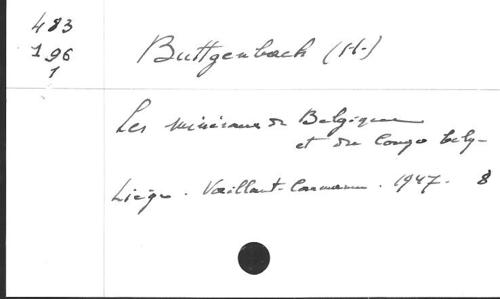 483
196
1
Buttgenbach (H.)
Les minéraux de Belgique
et du Congo belg-
Liège. Vaillant-Carmanne. 1947. 8